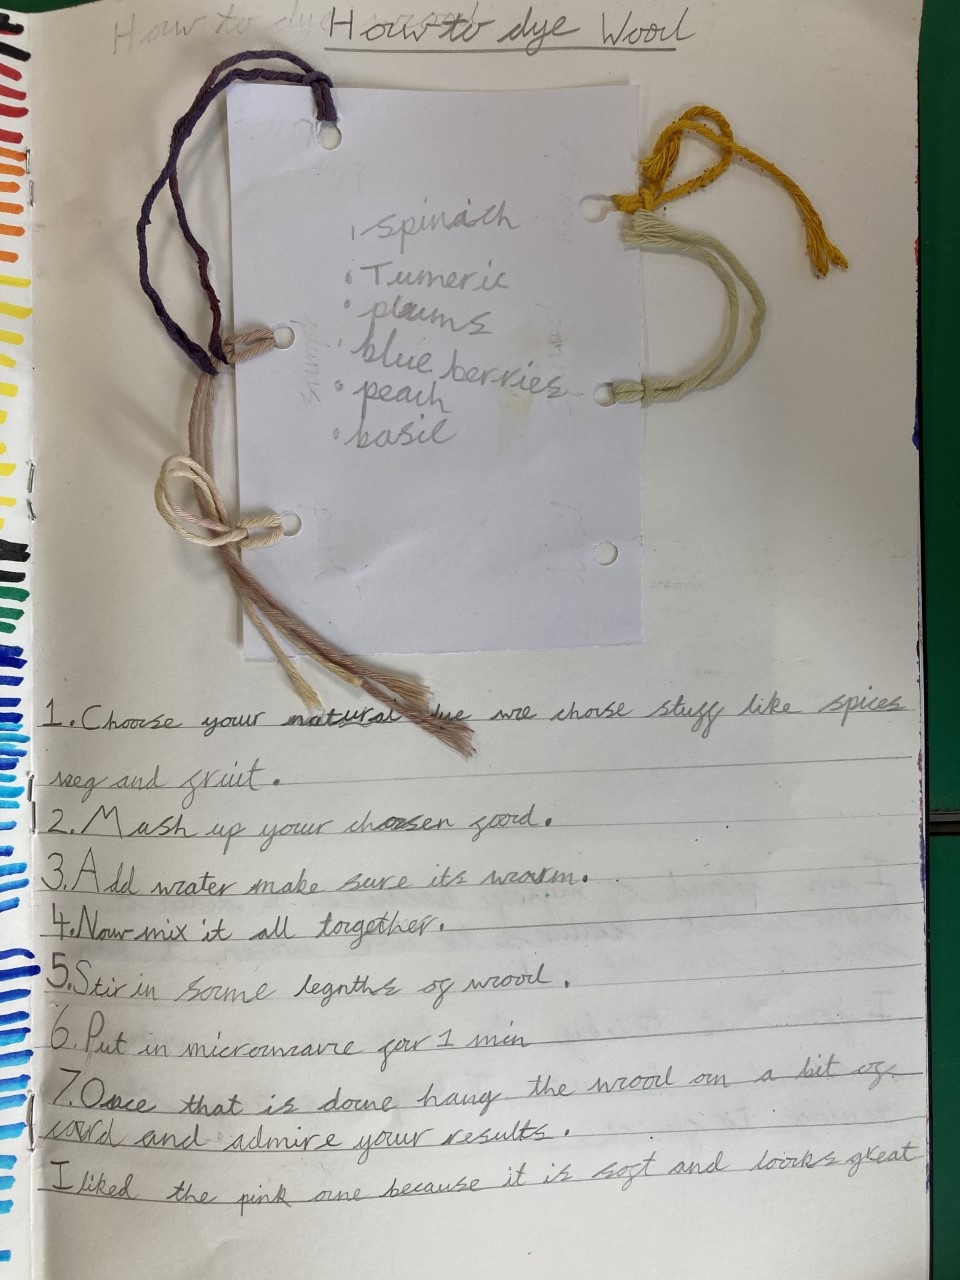 How to dye Wool
spinach
Tumeric
plums
blue berries
peach
basil
1. Choose your natural dye we chose stuff like spices
veg and fruit.
2. Mash up your chosen food.
3. Add water make sure its warm.
4. Now mix it all together.
5. Stir in some legnths of wool.
6. Put in microwave for 1 min
7. Once that is done hang the wool on a bit of
card and admire your results.
I liked the pink one because it is soft and looks great